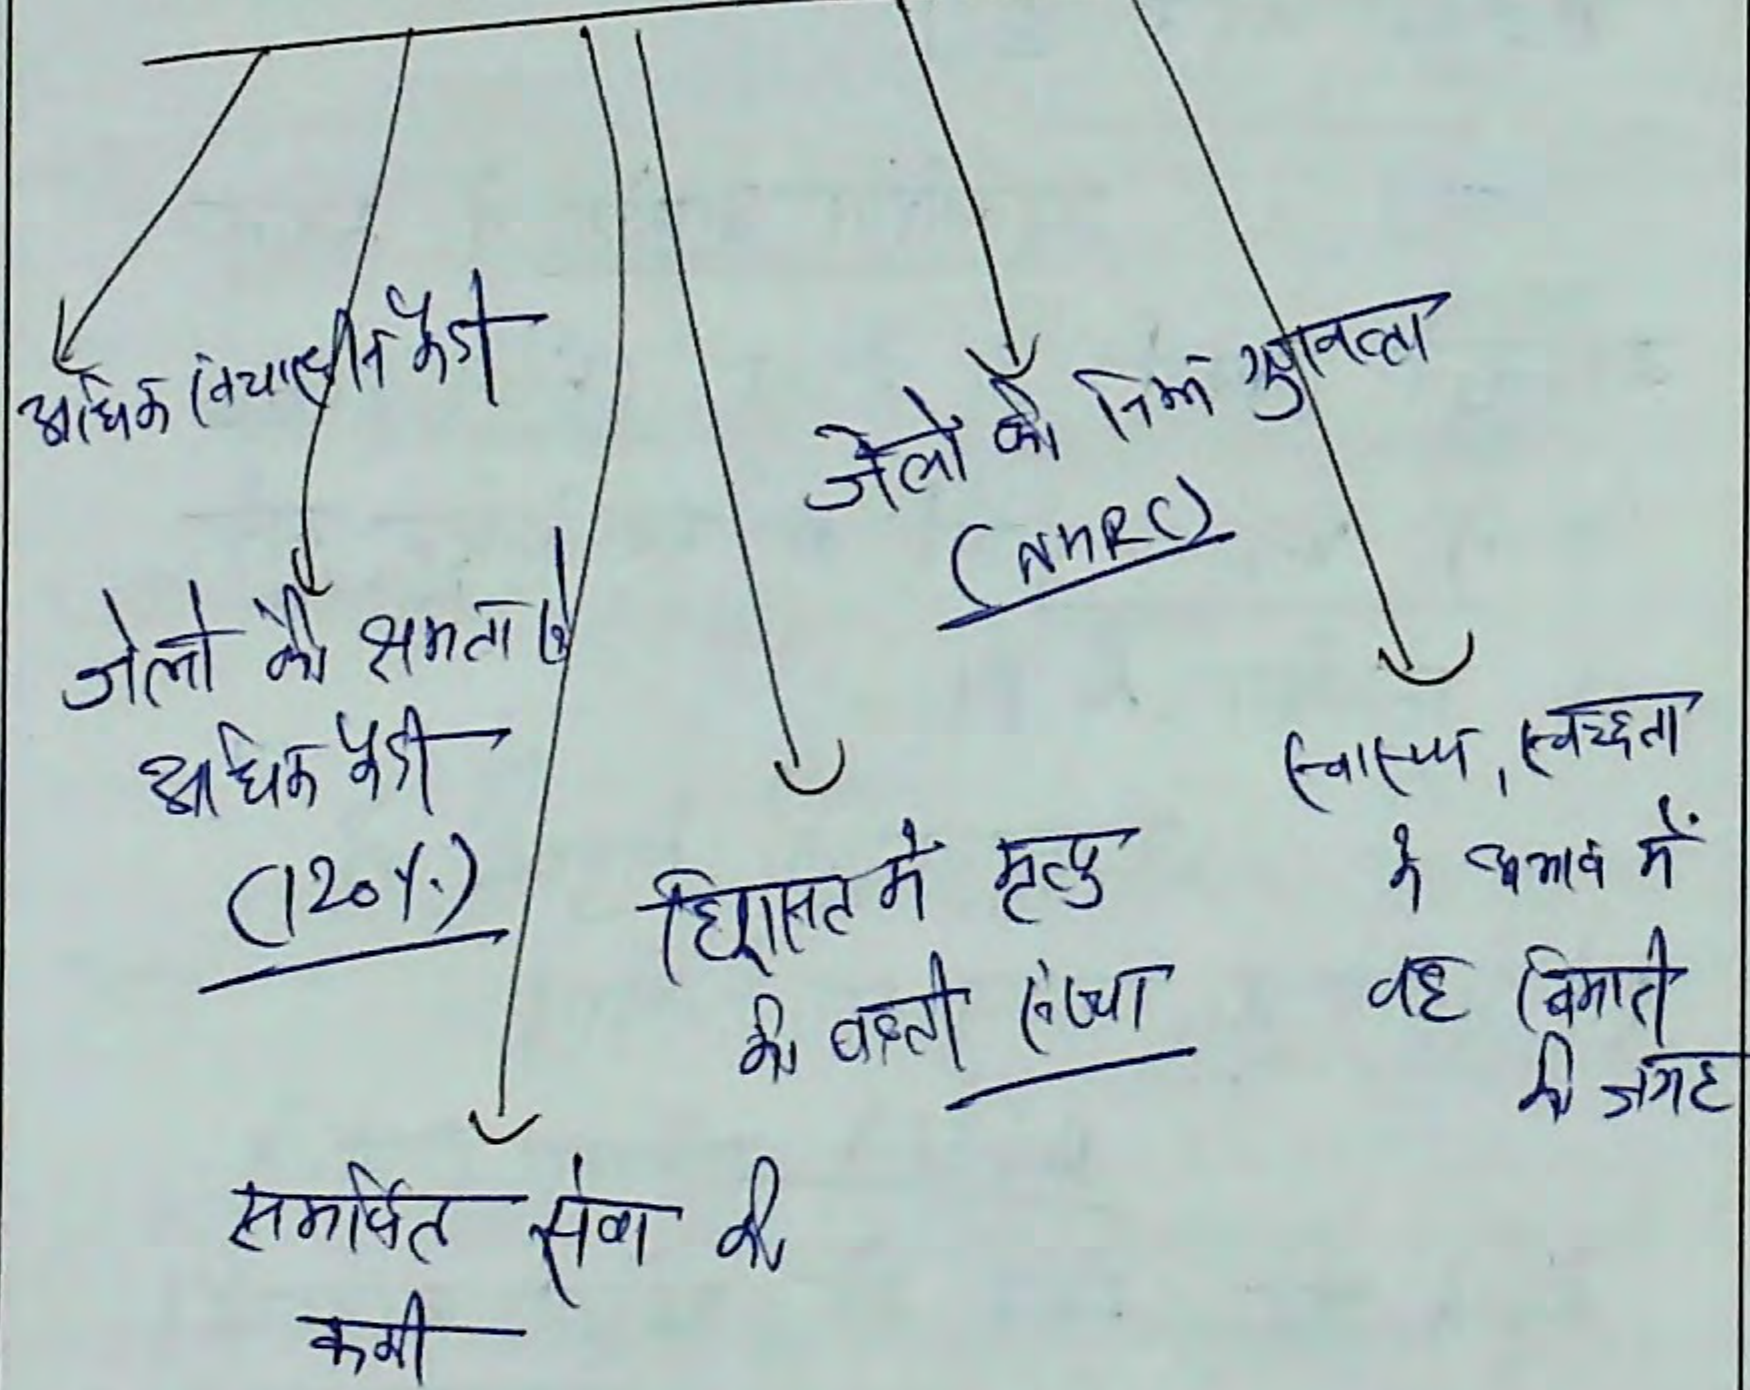 अधिक विचाराधीन कैदी
जेलों की क्षमता से
अधिक कैदी
(120%)
समर्पित सेवा की
कमी
हिरासत में मृत्यु
की बढ़ती संख्या
जेलों की निम्न गुणवत्ता
(NHRC)
स्वास्थ्य, स्वच्छता
के अभाव में
वह बिमारी
की जगह